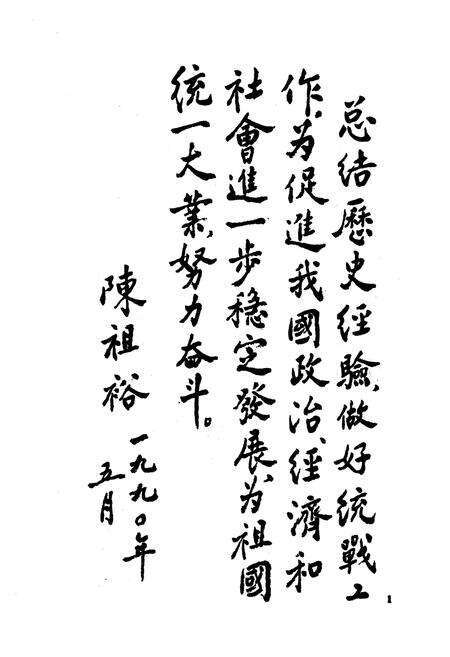 总结歷史经驗,做好統戰工
作,为促進我國政治、经濟和
社會進一步稳定發展,为祖國
统一大業,努力奋斗。
陳祖裕 一九九〇年
五月
1